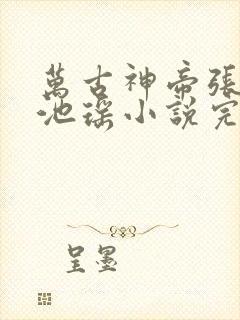 萬古神帝張
池瑤小說完
呈墨